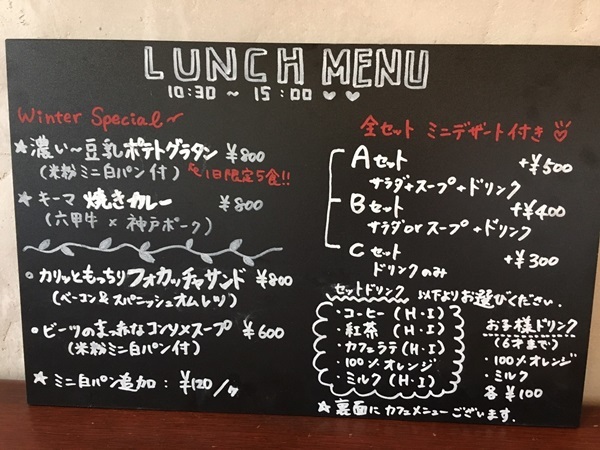 LUNCH MENU
10:30 ~ 15:00
Winter Special~
★濃い～豆乳ポテトグラタン ¥800
(米粉ミニ白パン付) 1日限定5食!!
★キーマ焼きカレー ¥800
(六甲牛×神戸ポーク)
○カリッともっちりフォカッチャサンド ¥800
(ベーコン&スパニッシュオムレツ)
・ビーツのまっ赤なコンソメスープ ¥600
(米粉ミニ白パン付)
★ミニ白パン追加: ¥120/ヶ
全セット ミニデザート付き
Aセット +¥500
サラダ+スープ+ドリンク
Bセット +¥400
サラダorスープ+ドリンク
Cセット +¥300
ドリンクのみ
セットドリンク 以下よりお選びください.
・コーヒー(H・I)
・紅茶(H・I)
・カフェラテ(H・I)
・100%オレンジ
・ミルク(H・I)
お子様ドリンク
(6才まで)
・100%オレンジ
・ミルク
各¥100
★裏面にカフェメニューございます.